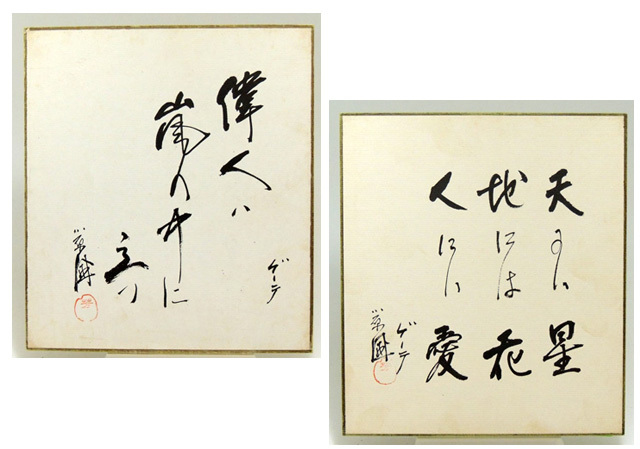 ゲーテ
偉人は
嵐の中に
立つ
天には星
地には花
人には愛
ゲーテ